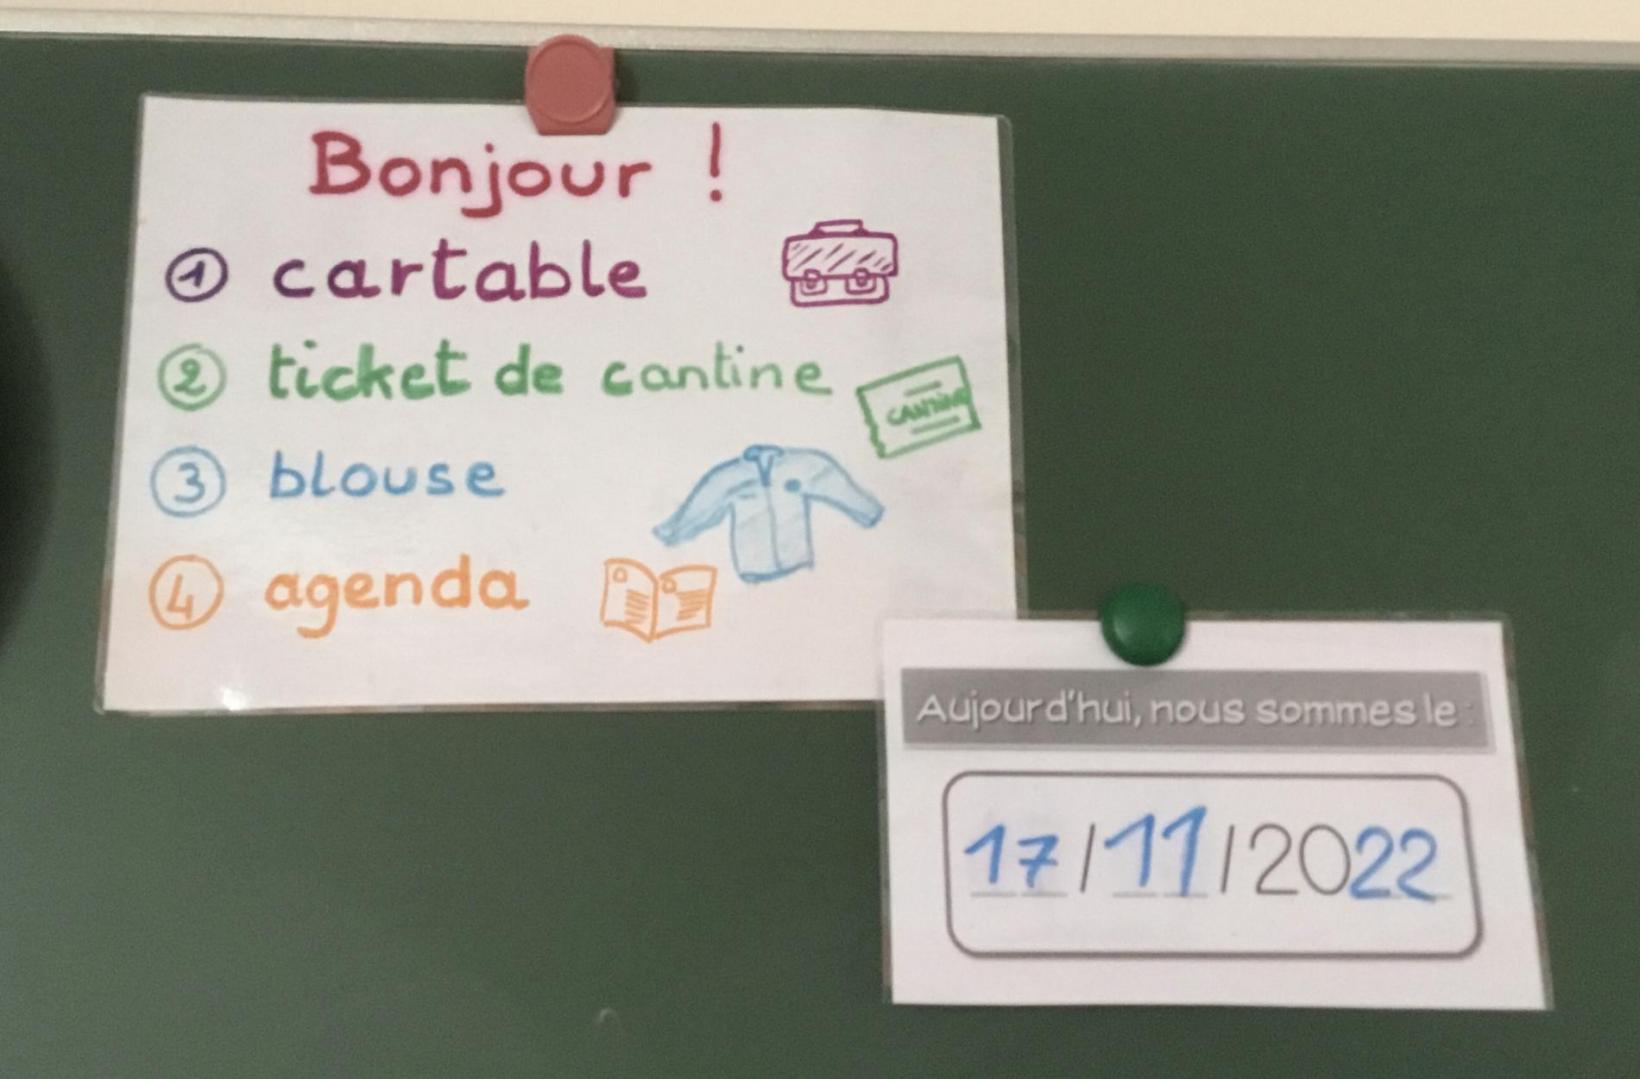 Bonjour !
1 cartable
2 ticket de cantine
CANTINE
3 blouse
4 agenda
Aujourd'hui, nous sommes le :
17/11/2022